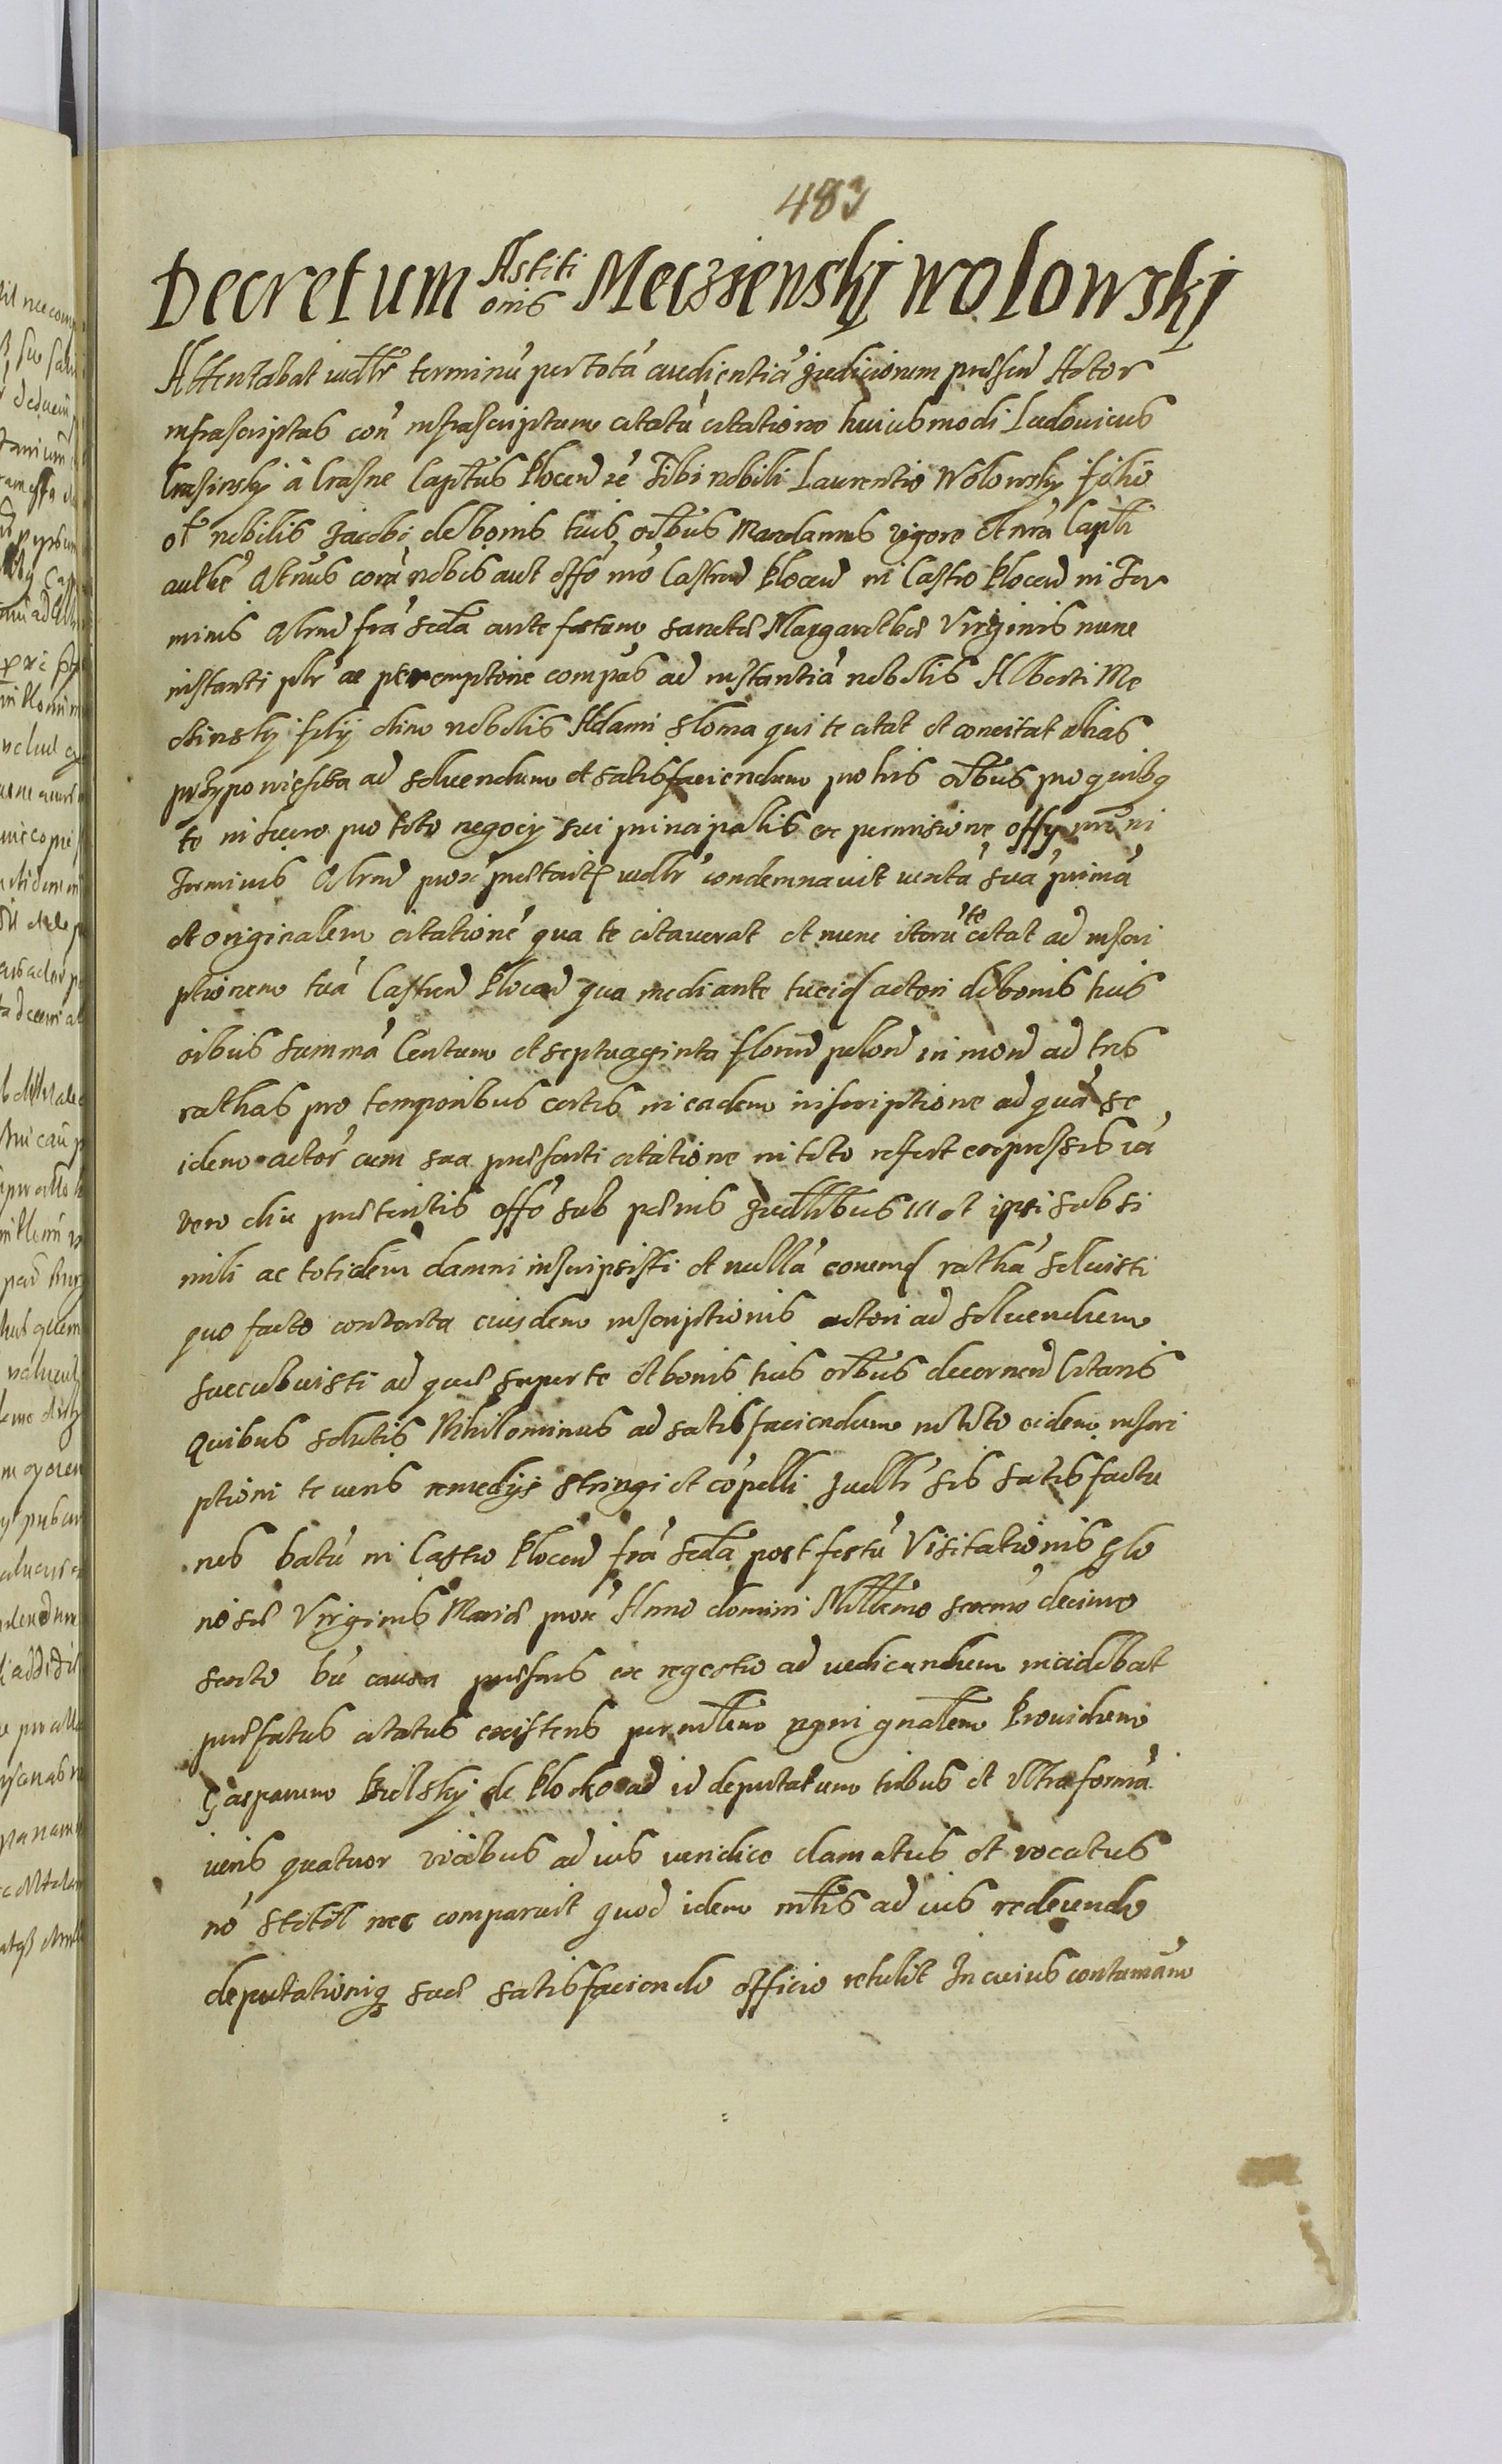 483
Decretum Astiti
onis Meczienskj Wolowskj
Attentabat iudlr terminũ per totã audientiã Judiciorum presen Actor
infrascriptus con infrascriptum citatũ citatione huiusmodi Ludovicus
Crasinsky à Crasne Capits Plocen zc Tibi nobili Laurentio Wolowsky filio
ol nobilis Jacobi de bonis tuis oibus Mandamus vigore et nra Capli
autte qtnus corã nobis aut offo nro Castren Plocen in Castro Plocen in Ter
minis qlrnu fra scda ante festum sanctæ Margarethæ Virginis nunc
instanti plr ac peremptorie compas ad instantiã nobilis Alberti Me
dzinsky filij olim nobilis Adami Sloma qui te citat et concitat alias
przypowiescza ad solvendum et satisfaciendum pro his oibus pro quibq
te in lucro pro toto negocij sui principalis ex permisione offy nri in
Terminis qlrnu prox præterit iudlr condemnavit iuxtã suã primã
et originalem citationẽ qua te citaverat et nunc iterũ te citat ad inscri
ptionem tuã Castren Plocen qua mediante tu eid actori de bonis tuis
oibus summã Centum et septuaginta floren polon in mon ad tres
rathas pro temporibus certis in eadem inscriptione ad quã se
idem actor cum sua præsenti citatione in toto refert expressis iã
vero diu præteritis offo sub pænis Judlibus III et ipsi sub si
mili ac totidem damni inscripsisti et nullã earund rathã solvisti
quo facto contenta eiusdem inscriptionis actori ad solvendum
succubuisti ad quæ super te et bonis tuis oibus decernend Citaris
Quibus solutis Nihilominus ad satisfaciendum in toto eidem inscri
ptioni te iuris remedijs stringi et cõpelli Judlr sis satisfactu
rus Datũ in Castro Plocen fra scda post festũ Visitationis Glo
riosæ Virginis Mariæ prox Anno domini Millimo sexcmo decimo
sexto Dũ causa præsens ex regestro ad iudicandum incidebat
præfatus citatus existens per mlem regni gnalem Providum
Gasparum Bielsky de Plocko ad id deputatum tribus et ultra formã
iuris quatuor vicibus ad ius iuridice clamatus et vocatus
nõ stetit nec comparuit quod idem mlis ad ius redeundo
deputationiq suæ satisfaciendo officio retulit In cuius contumam